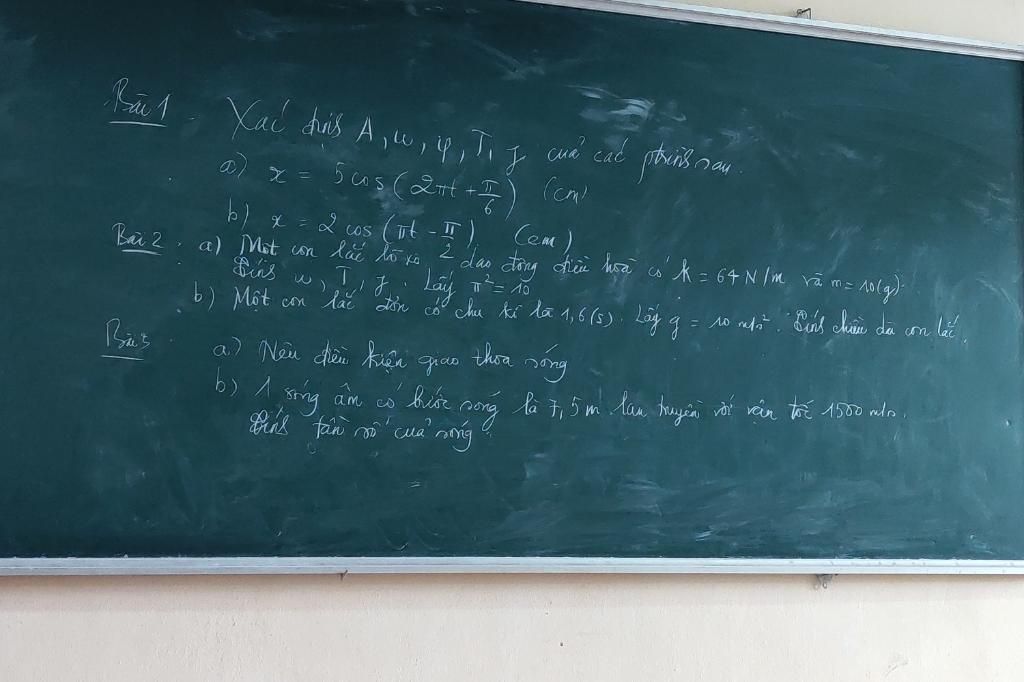 Bài 1. Xác định A, ω, φ, T, f của các ptrình sau.
a) x = 5cos(2πt + π/6) (cm)
b) x = 2 cos (πt - π/2) (cm)
Bài 2: a) Một con lắc lò xo dao động điều hoà có k = 64 N/m và m = 10(g).
Tính ω, T, f. Lấy π² = 10
b) Một con lắc đơn có chu kì là 1,6(s). Lấy g = 10 m/s². Tính chiều dài con lắc.
Bài 3: a) Nêu điều kiện giao thoa sóng
b) 1 sóng âm có bước sóng là 7,5m lan truyền với vận tốc 1500 m/s.
Tính tần số của sóng.